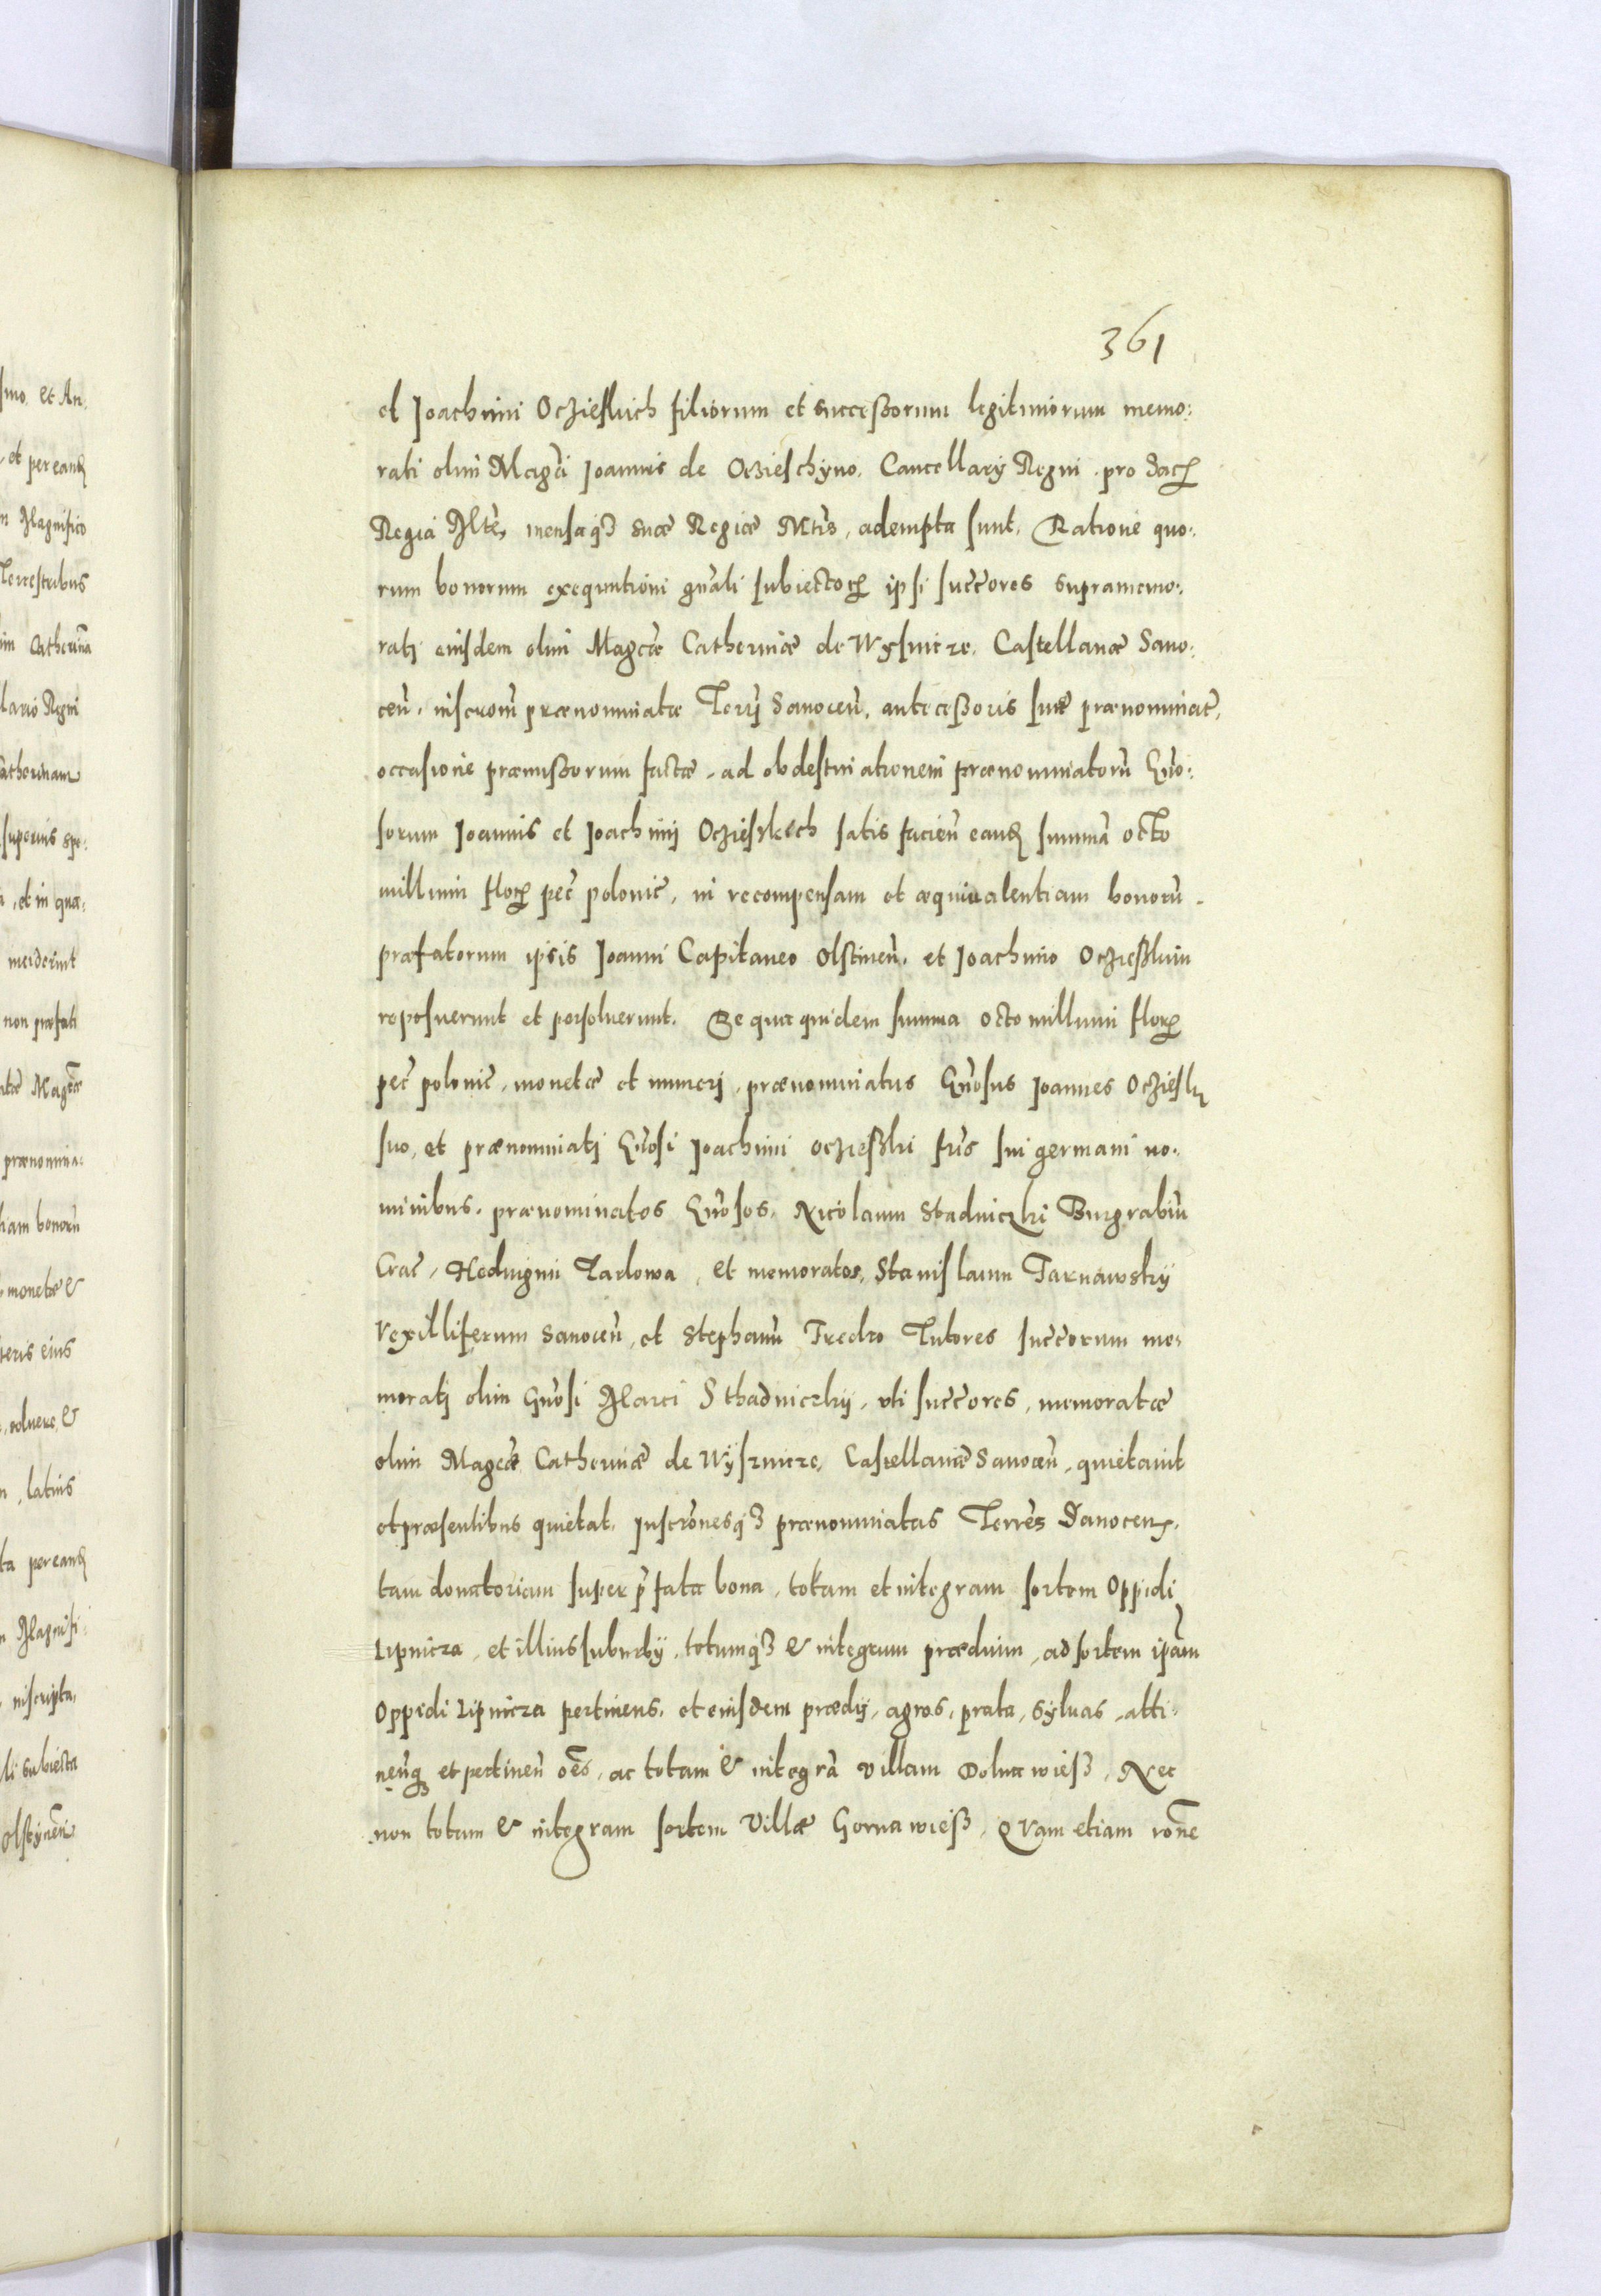 361
et Joachimi Oczieskich filiorum et successorum legitimorum memo:
rati olim Magci Joannis de Oczieschyno. Cancellarij Regni pro sacr
Regia Mte, mensaqz suæ Regiæ Mtis, adempta sunt. Ratione quo:
rum bonorum exequutioni gnali subiector ipsi succores supramemo:
rati eiusdem olim Magcæ Catherinæ de Wysnicze. Castellanæ Sano:
cen. inscrom prænominatæ Terrj Sanocen. antecessoris suæ prænominat,
occasione præmissorum factæ, ad obdestinationem prænominatoru Gno:
sorum Joannis et Joachimj Ocziesksch satis facien eand summa octo
millium flor pec polonic, in recompensam et æquiualentiam bonoru
præfatorum ipsis Joanni Capitaneo Olstinen. et Joachimo Oczieskim
reposuerunt et persoluerunt. De qua quidem summa octo millium flor
pec polonic, monetæ et numerj, prænominatus Gnosus Joannes Ocziesky
suo, et prænominatj Gnosi Joachimi Oczieski fris sui germani no:
minibus, prænominatos Gnosos. Nicolaum Stadniczki Burgrabiu
Crac, Heduigim Tarlowa, et memoratos, Stanislaum Tarnawsky
Vexilliferum Sanocen, et Stephanu Fredro Tutores succorum me:
moratj olim Gnosi Marci Sthadniczkij, uti succores, memoratæ
olim Magcæ Catherinæ de Wysznicze, Castellanæ Sanocen, quietauit
et præsentibus quietat. Inscronesqz prænominatas Terres Sanocen,
tam donatoriam super pfata bona, totam et integram sortem Oppidi
Lipnicza, et illius suburbij, totumqz & integrum prædium, ad sortem ipam
Oppidi Lipnicza pertinens. et eiusdem prædij, agros, prata, syluas, atti:
nenq et pertinen oes, ac totam & integra villam Dolna wiess, Nec
non totam & integram sortem Villæ Gorna wiess, Quam etiam rone